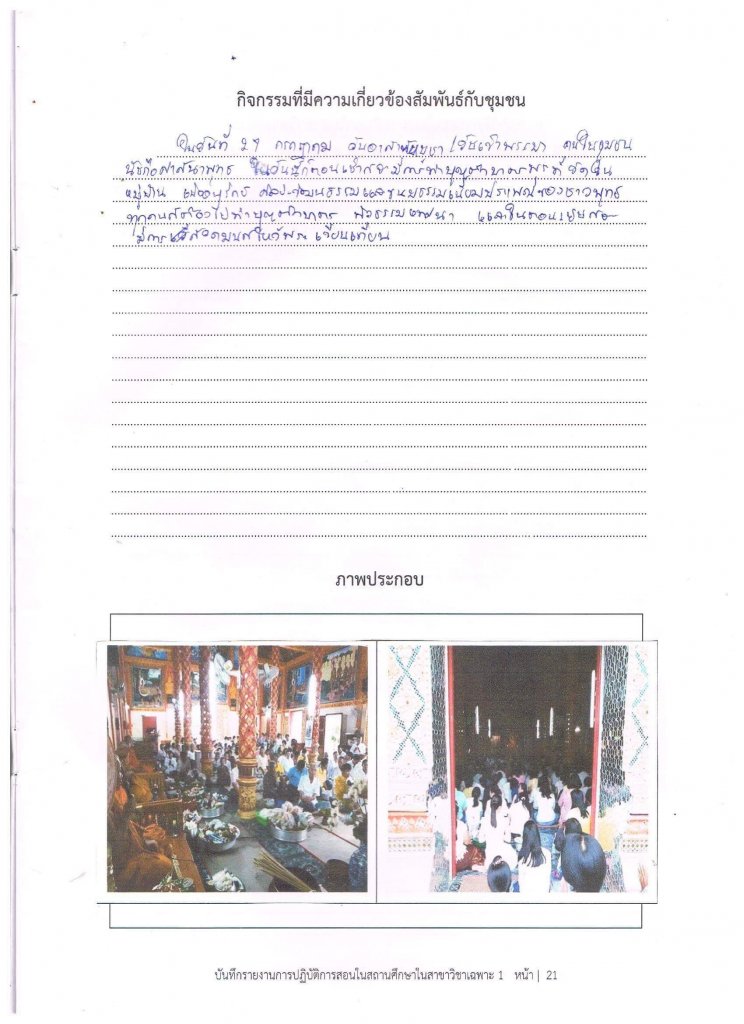 กิจกรรมที่มีความเกี่ยวข้องสัมพันธ์กับชุมชน
ในวันที่ 27 กรกฎาคม วันอาสาฬหบูชา/วันเข้าพรรษา คนในชุมชน
นับถือศาสนาพุทธ ในวันนี้ตอนเช้าจะมีการทำบุญตักบาตรพระที่วัดใน
หมู่บ้าน เพื่ออนุรักษ์ ศิลปะวัฒนธรรมและขนบธรรมเนียมประเพณีของชาวพุทธ
ทุกคนจะต้องไปทำบุญตักบาตร ฟังธรรมเทศนา และในตอนเย็นจะ
มีการสวดมนต์ไหว้พระ เวียนเทียน
ภาพประกอบ
บันทึกรายงานการปฏิบัติการสอนในสถานศึกษาในสาขาวิชาเฉพาะ 1 หน้า | 21